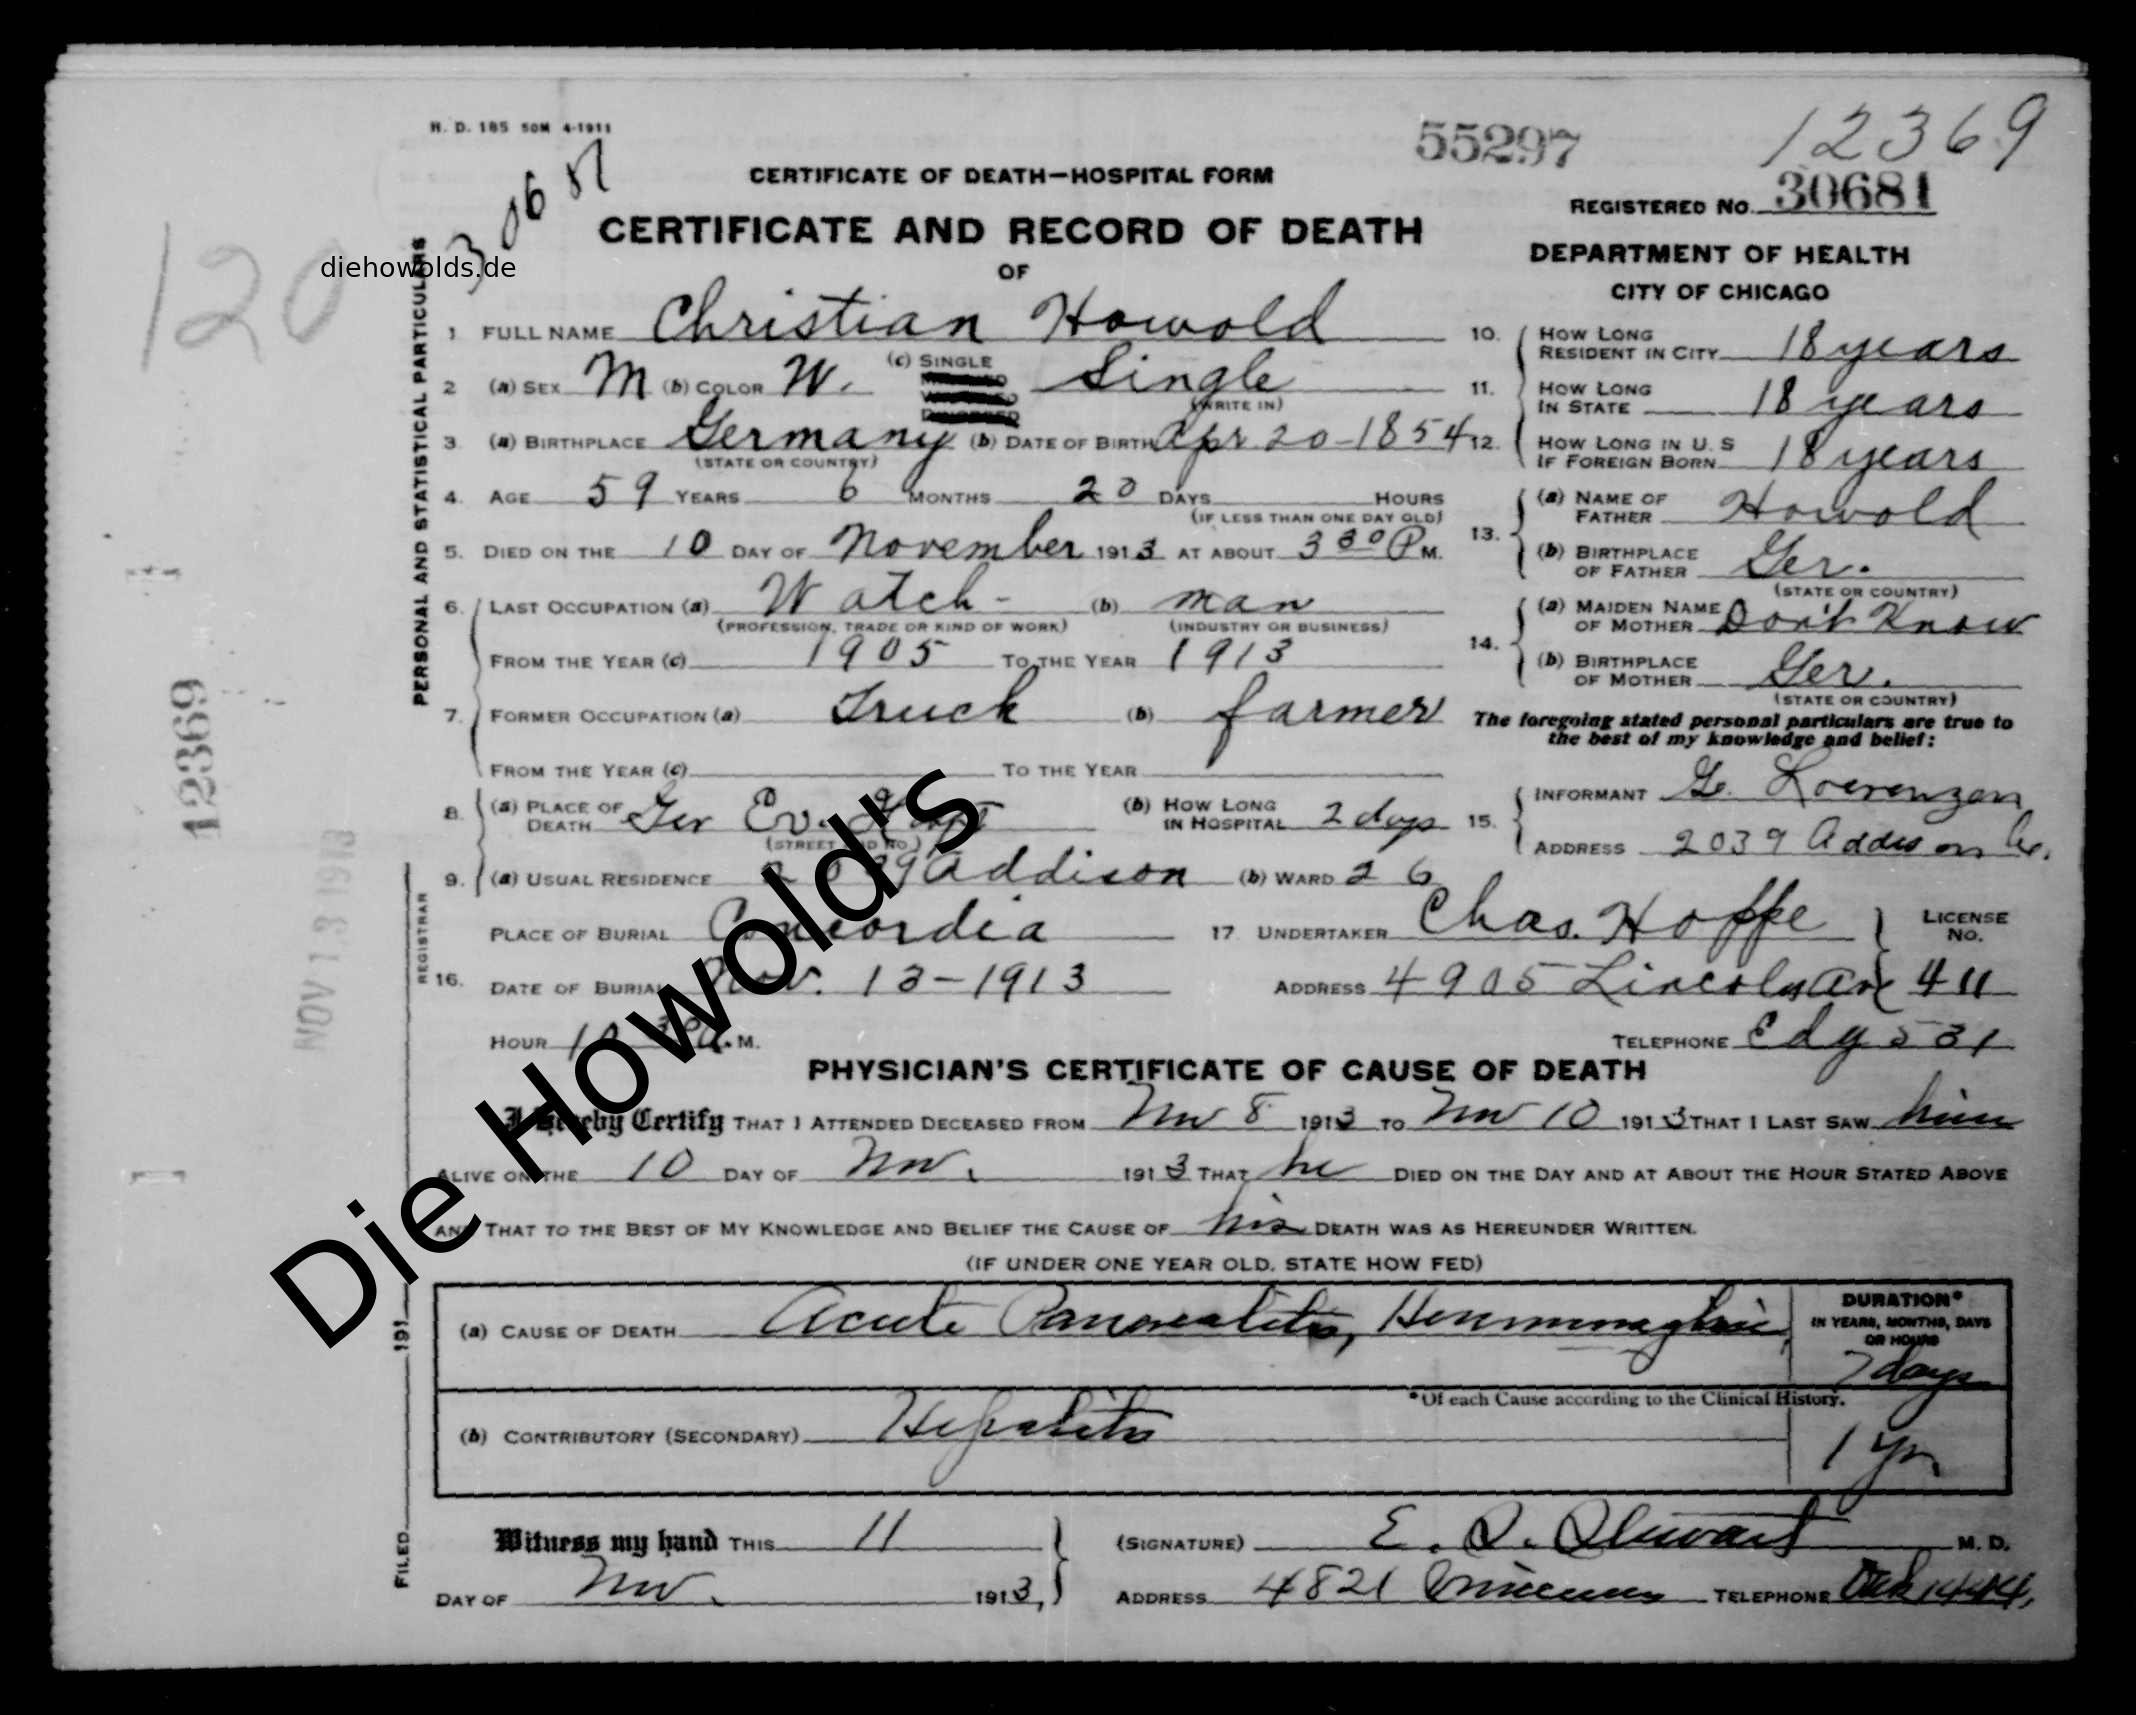 H. D. 185 50M 4-1911
55297
12369
30681
CERTIFICATE OF DEATH—HOSPITAL FORM
REGISTERED No. 30681
CERTIFICATE AND RECORD OF DEATH
OF
DEPARTMENT OF HEALTH
CITY OF CHICAGO
120
diehowolds.de
PERSONAL AND STATISTICAL PARTICULARS
1. FULL NAME Christian Howold
2 (a) SEX M (b) COLOR W. (c) SINGLE Single
(WRITE IN)
3. (a) BIRTHPLACE Germany (b) DATE OF BIRTH Apr 20-1854
(STATE OR COUNTRY)
4. AGE 59 YEARS 6 MONTHS 20 DAYS HOURS
(IF LESS THAN ONE DAY OLD)
5. DIED ON THE 10 DAY OF November 1913 AT ABOUT 3 30 P M.
6. LAST OCCUPATION (a) Watch- (b) man
(PROFESSION, TRADE OR KIND OF WORK) (INDUSTRY OR BUSINESS)
FROM THE YEAR (c) 1905 TO THE YEAR 1913
7. FORMER OCCUPATION (a) Truck (b) farmer
FROM THE YEAR (c) TO THE YEAR
8. (a) PLACE OF DEATH Ger Ev. (b) HOW LONG IN HOSPITAL 2 days
(STREET AND NO.)
9. (a) USUAL RESIDENCE 2039 Addison (b) WARD 26
10. HOW LONG RESIDENT IN CITY 18 years
11. HOW LONG IN STATE 18 years
12. HOW LONG IN U. S IF FOREIGN BORN 18 years
13. (a) NAME OF FATHER Howold
(b) BIRTHPLACE OF FATHER Ger.
(STATE OR COUNTRY)
14. (a) MAIDEN NAME OF MOTHER Don't Know
(b) BIRTHPLACE OF MOTHER Ger.
(STATE OR COUNTRY)
The foregoing stated personal particulars are true to
the best of my knowledge and belief:
15. INFORMANT G. Lorenzen
ADDRESS 2039 Addison Av.
REGISTRAR
16. PLACE OF BURIAL Concordia
DATE OF BURIAL Nov. 13-1913
HOUR 10 30 A. M.
17 UNDERTAKER Chas. Hoffe LICENSE No.
ADDRESS 4905 Lincoln Ave 411
TELEPHONE Edg 531
12369
NOV 13 1913
Die Howold's
PHYSICIAN'S CERTIFICATE OF CAUSE OF DEATH
I Hereby Certify THAT I ATTENDED DECEASED FROM Nov 8 1913 TO Nov 10 1913 THAT I LAST SAW him
ALIVE ON THE 10 DAY OF Nov. 1913 THAT he DIED ON THE DAY AND AT ABOUT THE HOUR STATED ABOVE
AND THAT TO THE BEST OF MY KNOWLEDGE AND BELIEF THE CAUSE OF his DEATH WAS AS HEREUNDER WRITTEN.
(IF UNDER ONE YEAR OLD, STATE HOW FED)
(a) CAUSE OF DEATH Acute Pancreatitis, Hemmorraghic
DURATION*
IN YEARS, MONTHS, DAYS
OR HOURS
7 days
*Of each Cause according to the Clinical History.
(b) CONTRIBUTORY (SECONDARY) Hepatitis 1 yr
FILED 191
Witness my hand THIS 11
DAY OF Nov. 1913,
(SIGNATURE) E. Stewart M. D.
ADDRESS 4821 TELEPHONE